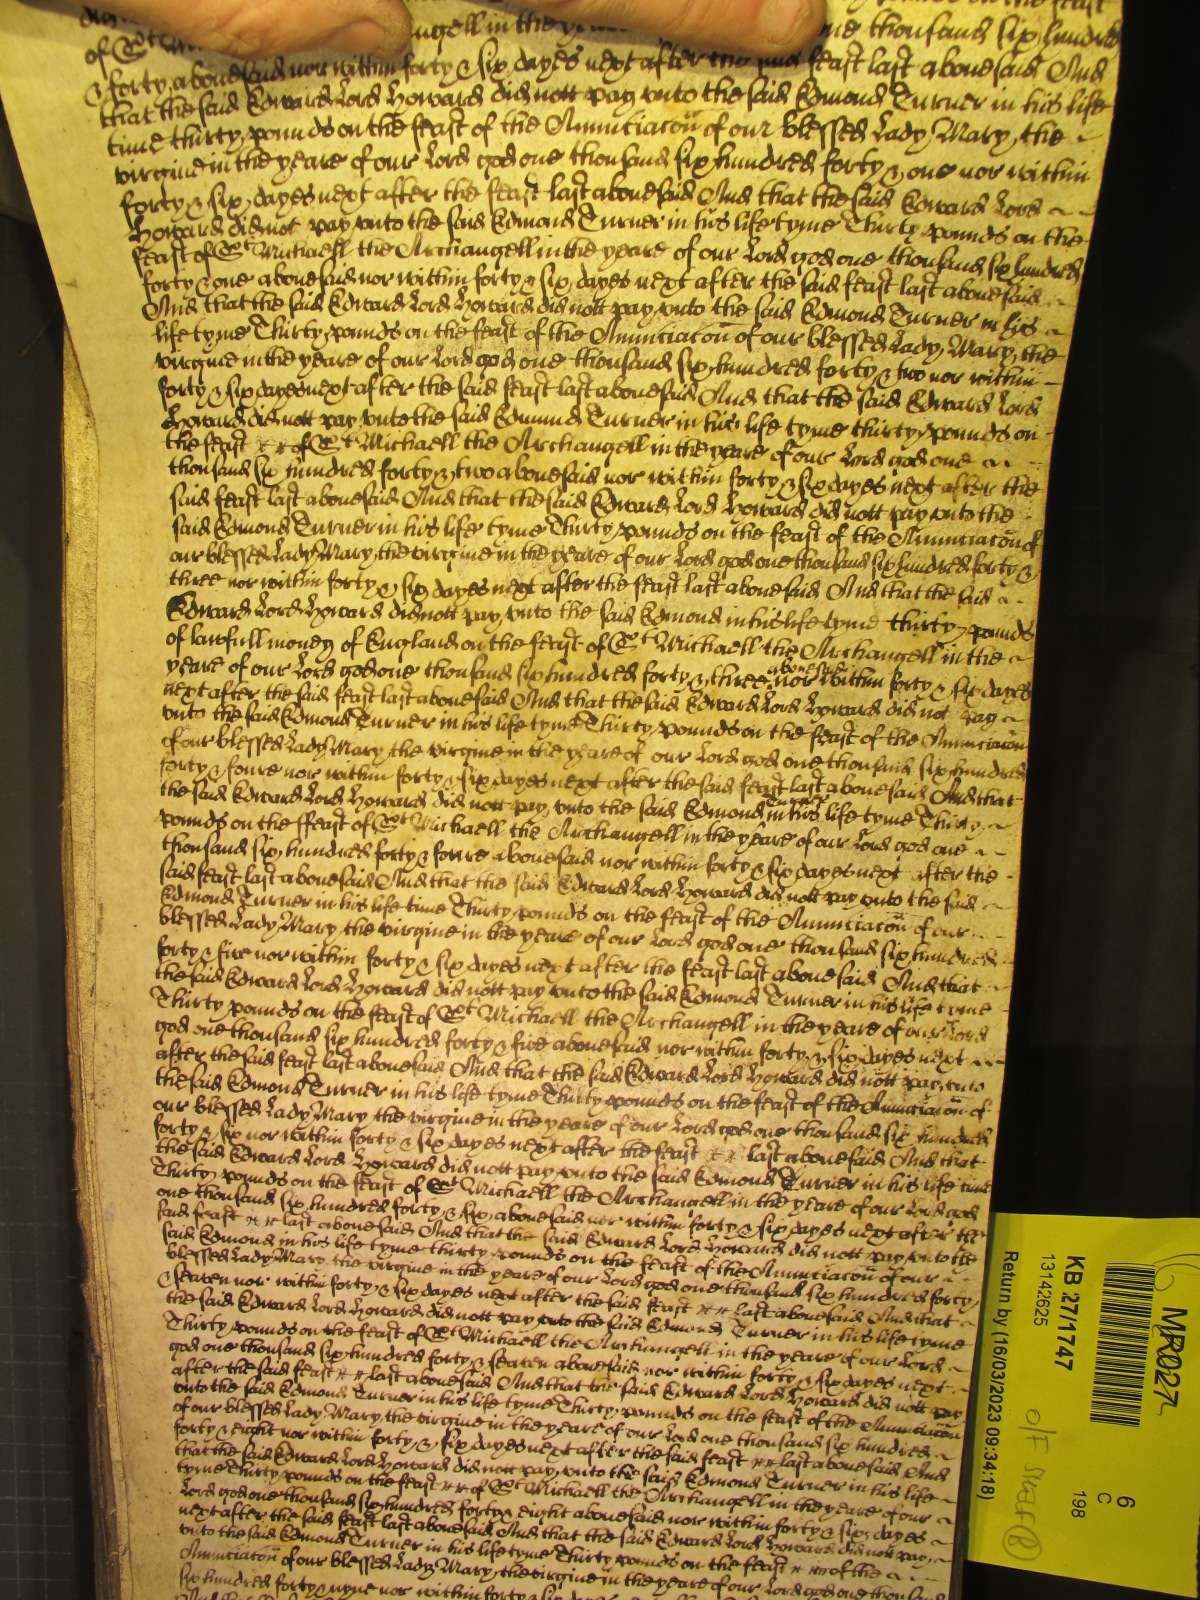 of St ngell in the one thousand six hundred
& forty, abovesaid nor within forty & six dayes next after the said feast last abovesaid And
that the said Edward Lord Howard did nott pay unto the said Edmond Turner in his life
time thirty pounds on the feast of the Annunciacon of our blessed Lady Mary, the
virgine in the yeare of our Lord god one thousand six hundred forty & one nor within
forty & six, dayes next after the feast last abovesaid And that the said Edward Lord
Howard did not pay unto the said Edmond Turner in his life tyme Thirty pounds on the
feast of St Michaell the Archangell in the yeare of our Lord god one thousand six hundred
forty & one abovesaid nor within forty & six dayes next after the said feast last abovesaid
And that the said Edward Lord Howard did nott pay unto the said Edmond Turner in his
life tyme Thirty pounds on the feast of the Annunciacon of our blessed Lady, Mary, the
virgine in the yeare of our Lord god one thousand six hundred forty & two nor within
forty & six dayes next after the said feast last abovesaid And that the said Edward Lord
Howard did nott pay unto the said Edmund Turner in his life tyme thirty pounds on
the feast of St Michaell the Archangell in the yeare of our Lord god one
thousand six hundred forty & two abovesaid nor within forty & six dayes next after the
said feast last abovesaid And that the said Edward Lord Howard did nott pay unto the
said Edmond Turner in his life tyme Thirty pounds on the feast of the Annunciacon of
our blessed Lady Mary, the virgine in the yeare of our Lord god one thousand six hundred forty &
three nor within forty & six dayes next after the feast last abovesaid And that the said
Edward Lord Howard did nott pay, unto the said Edmond in his life tyme thirty pounds
of lawfull money of England on the feast of St Michaell the Archangell in the
yeare of our Lord god one thousand six hundred forty & three abovesaid nor within forty & six dayes
next after the said feast last abovesaid And that the said Edward Lord Howard did not pay
unto the said Edmond Turner in his life tyme Thirty pounds on the feast of the Annunciacon
of our blessed Lady Mary the virgine in the yeare of our Lord god one thousand six hundred
forty & foure nor within forty & six dayes next after the said feast last abovesaid And that
the said Edward Lord Howard did nott pay unto the said Edmond Turner in his life tyme Thirty
pounds on the ffeast of St Michaell the Archangell in the yeare of our Lord god one
thousand six, hundred forty & foure abovesaid nor within forty & six dayes next after the
said feast last abovesaid And that the said Edward Lord Howard did nott pay unto the said
Edmond Turner in his life time Thirty pounds on the feast of the Annunciacon of our
blessed Lady Mary the virgine in the yeare of our Lord god one thousand six hundred
forty & five nor within forty & six dayes next after the feast last abovesaid And that
the said Edward Lord Howard did nott pay unto the said Edmond Turner in his life tyme
Thirty pounds on the feast of St Michaell the Archangell in the yeare of our Lord
god one thousand six hundred forty & five abovesaid nor within forty & six dayes next
after the said feast last abovesaid And that the said Edward Lord Howard did nott pay, unto
the said Edmond Turner in his life tyme Thirty pounds on the feast of the Annunciacon of
our blessed Lady Mary the virgine in the yeare of our Lord god one thousand six hundred
forty & six nor within forty & six dayes next after the feast last abovesaid And that
the said Edward Lord Howard did nott pay unto the said Edmond Turner in his life time
Thirty pounds on the feast of St Michaell the Archangell in the yeare of our Lord god
one thousand six hundred forty & six abovesaid nor within forty & six dayes next after the
said feast last abovesaid And that the said Edward Lord Howard did nott pay unto the
said Edmond in his life tyme thirty pounds on the feast of the Annunciacon of our
blessed Lady Mary the virgine in the yeare of our Lord god one thousand six hundred forty
& seaven nor within forty & six dayes next after the said feast last abovesaid And that
the said Edward Lord Howard did nott pay unto the said Edmond Turner in his life tyme
Thirty pounds on the feast of St Michaell the Archangell in the yeare of our Lord
god one thousand six hundred forty & seaven abovesaid nor within forty & six dayes next
after the said feast last abovesaid And that the said Edward Lord Howard did nott pay
unto the said Edmond Turner in his life tyme Thirty pounds on the feast of the Annunciacon
of our blessed Lady Mary, the virgine in the yeare of our Lord one thousand six hundred
forty & eight nor within forty & six dayes next after the said feast last abovesaid And
that the said Edward Lord Howard did nott pay, unto the said Edmond Turner in his life
tyme Thirty pounds on the feast of St Michaell the Archangell in the yeare of our
Lord god one thousand six hundred forty & eight abovesaid nor within forty & six dayes
next after the said feast last abovesaid And that the said Edward Lord Howard did nott pay,
unto the said Edmond Turner in his life tyme Thirty pounds on the feast of the
Annunciacon of our blessed Lady Mary, the virgine in the yeare of our Lord god one thousand
six hundred forty & nyne nor within forty & six
MR027
KB 27/1747
13142625
Return by (16/03/2023 09:34:18)
6
C
198
O/F Shelf B